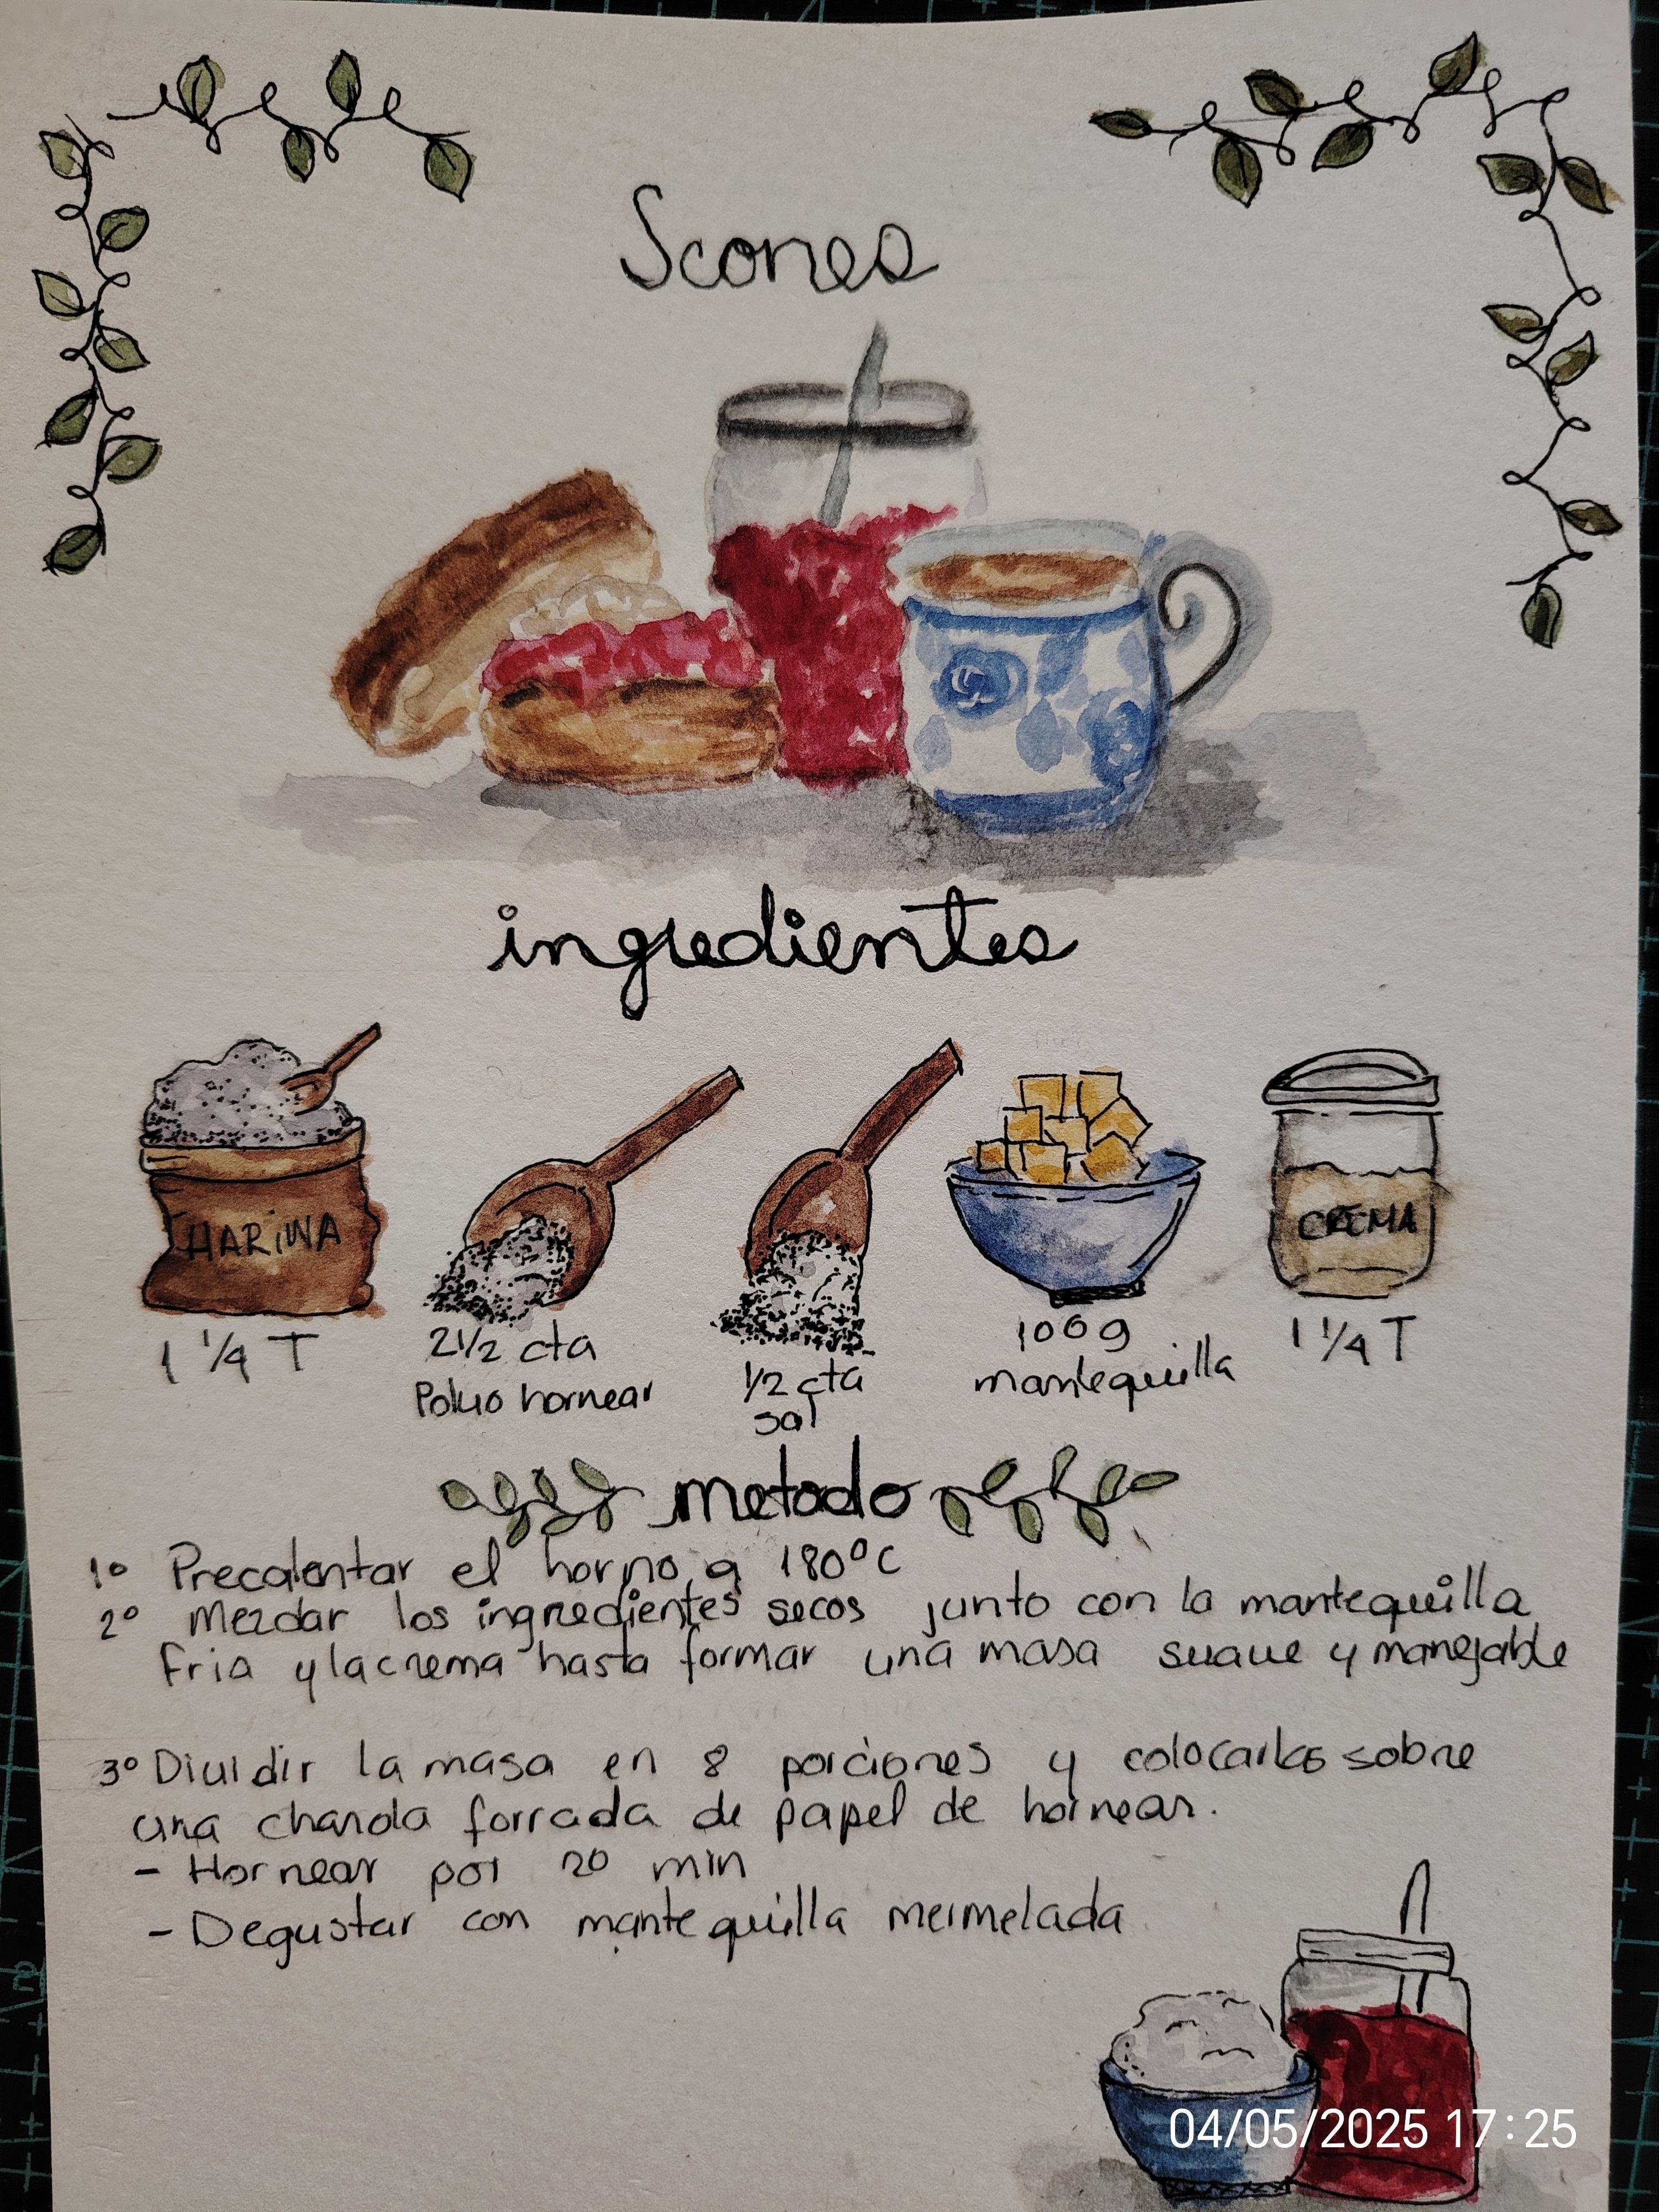 Scones
ingredientes
HARINA
CREMA
1 1/4 T
2 1/2 cta
Polvo hornear
1/2 cta
sal
100g
mantequilla
1 1/4 T
metodo
1º Precalentar el horno a 180°C
2º Mezclar los ingredientes secos junto con la mantequilla
fria y la crema hasta formar una masa suave y manejable
3º Dividir la masa en 8 porciones y colocarlos sobre
una charola forrada de papel de hornear.
- Hornear por 20 min
- Degustar con mantequilla mermelada
04/05/2025 17:25